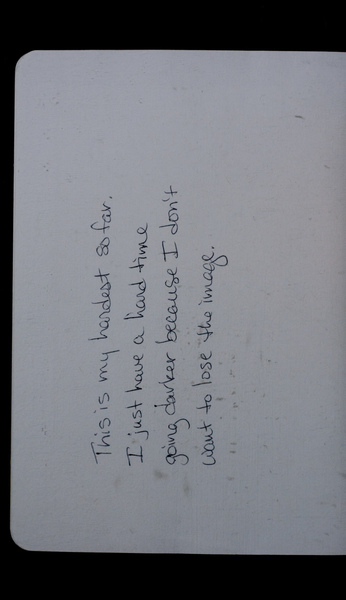 This is my hardest so far.
I just have a hard time
going darker because I don't
want to lose the image.